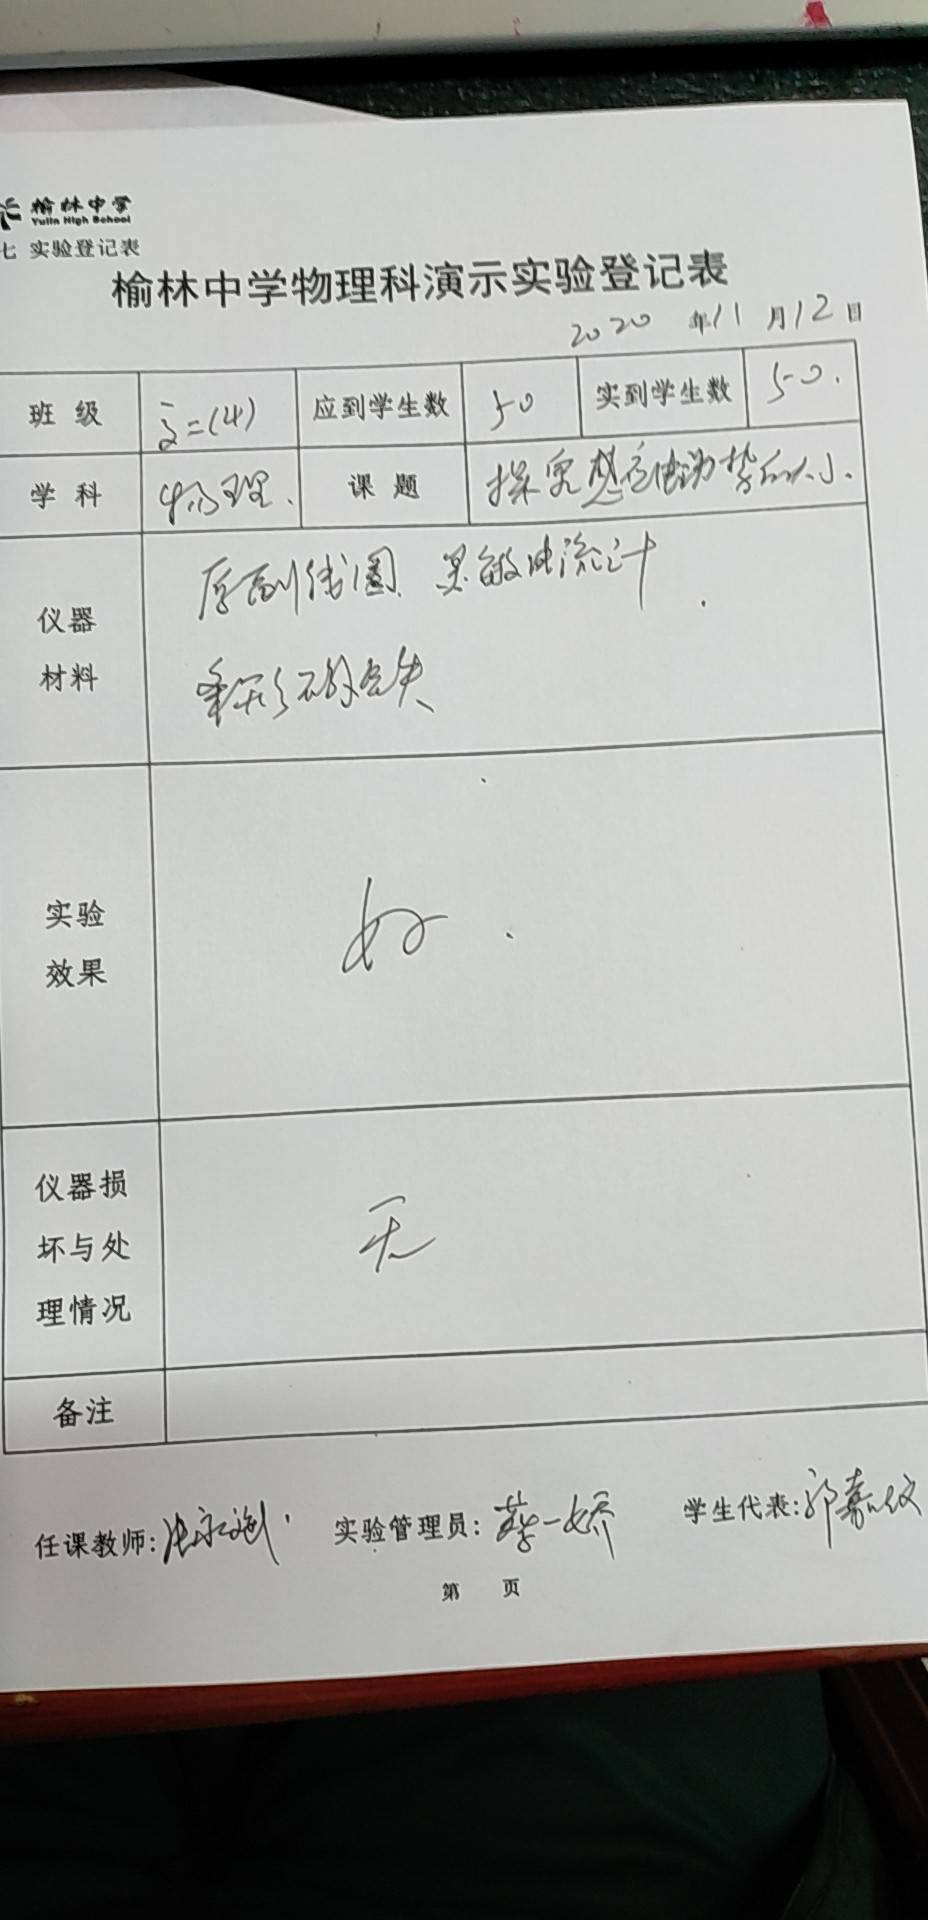 榆林中学
Yulin High School
七 实验登记表
榆林中学物理科演示实验登记表
2020 年 11 月 12 日
班 级 高二(4) 应到学生数 50 实到学生数 50.
学 科 物理. 课 题 探究感应电动势的大小.
仪器
材料
原副线圈、灵敏电流计.
条形磁铁
实验
效果
好.
仪器损
坏与处
理情况
无
备注
任课教师: 实验管理员: 蔡一娇 学生代表:
第 页